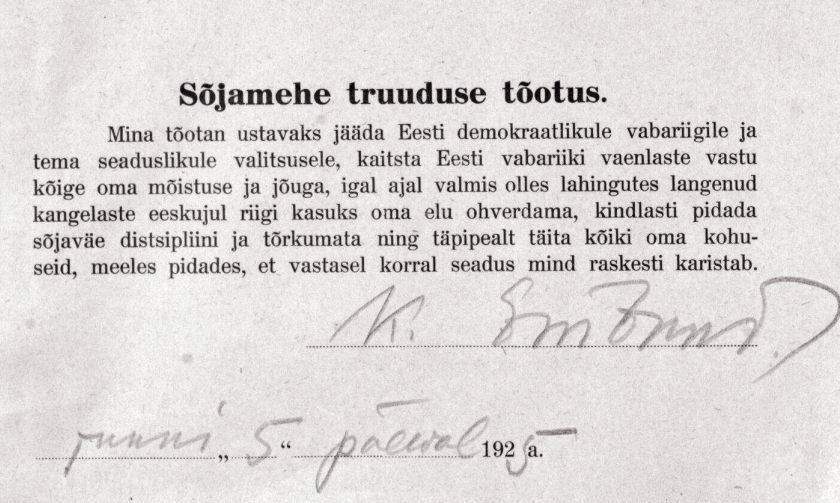 Sõjamehe truuduse tõotus.
Mina tõotan ustavaks jääda Eesti demokraatlikule vabariigile ja
tema seaduslikule valitsusele, kaitsta Eesti vabariiki vaenlaste vastu
kõige oma mõistuse ja jõuga, igal ajal valmis olles lahingutes langenud
kangelaste eeskujul riigi kasuks oma elu ohverdama, kindlasti pidada
sõjaväe distsipliini ja tõrkumata ning täpipealt täita kõiki oma kohu-
seid, meeles pidades, et vastasel korral seadus mind raskesti karistab.
K.
juuni „ 5 “ päewal 1925 a.